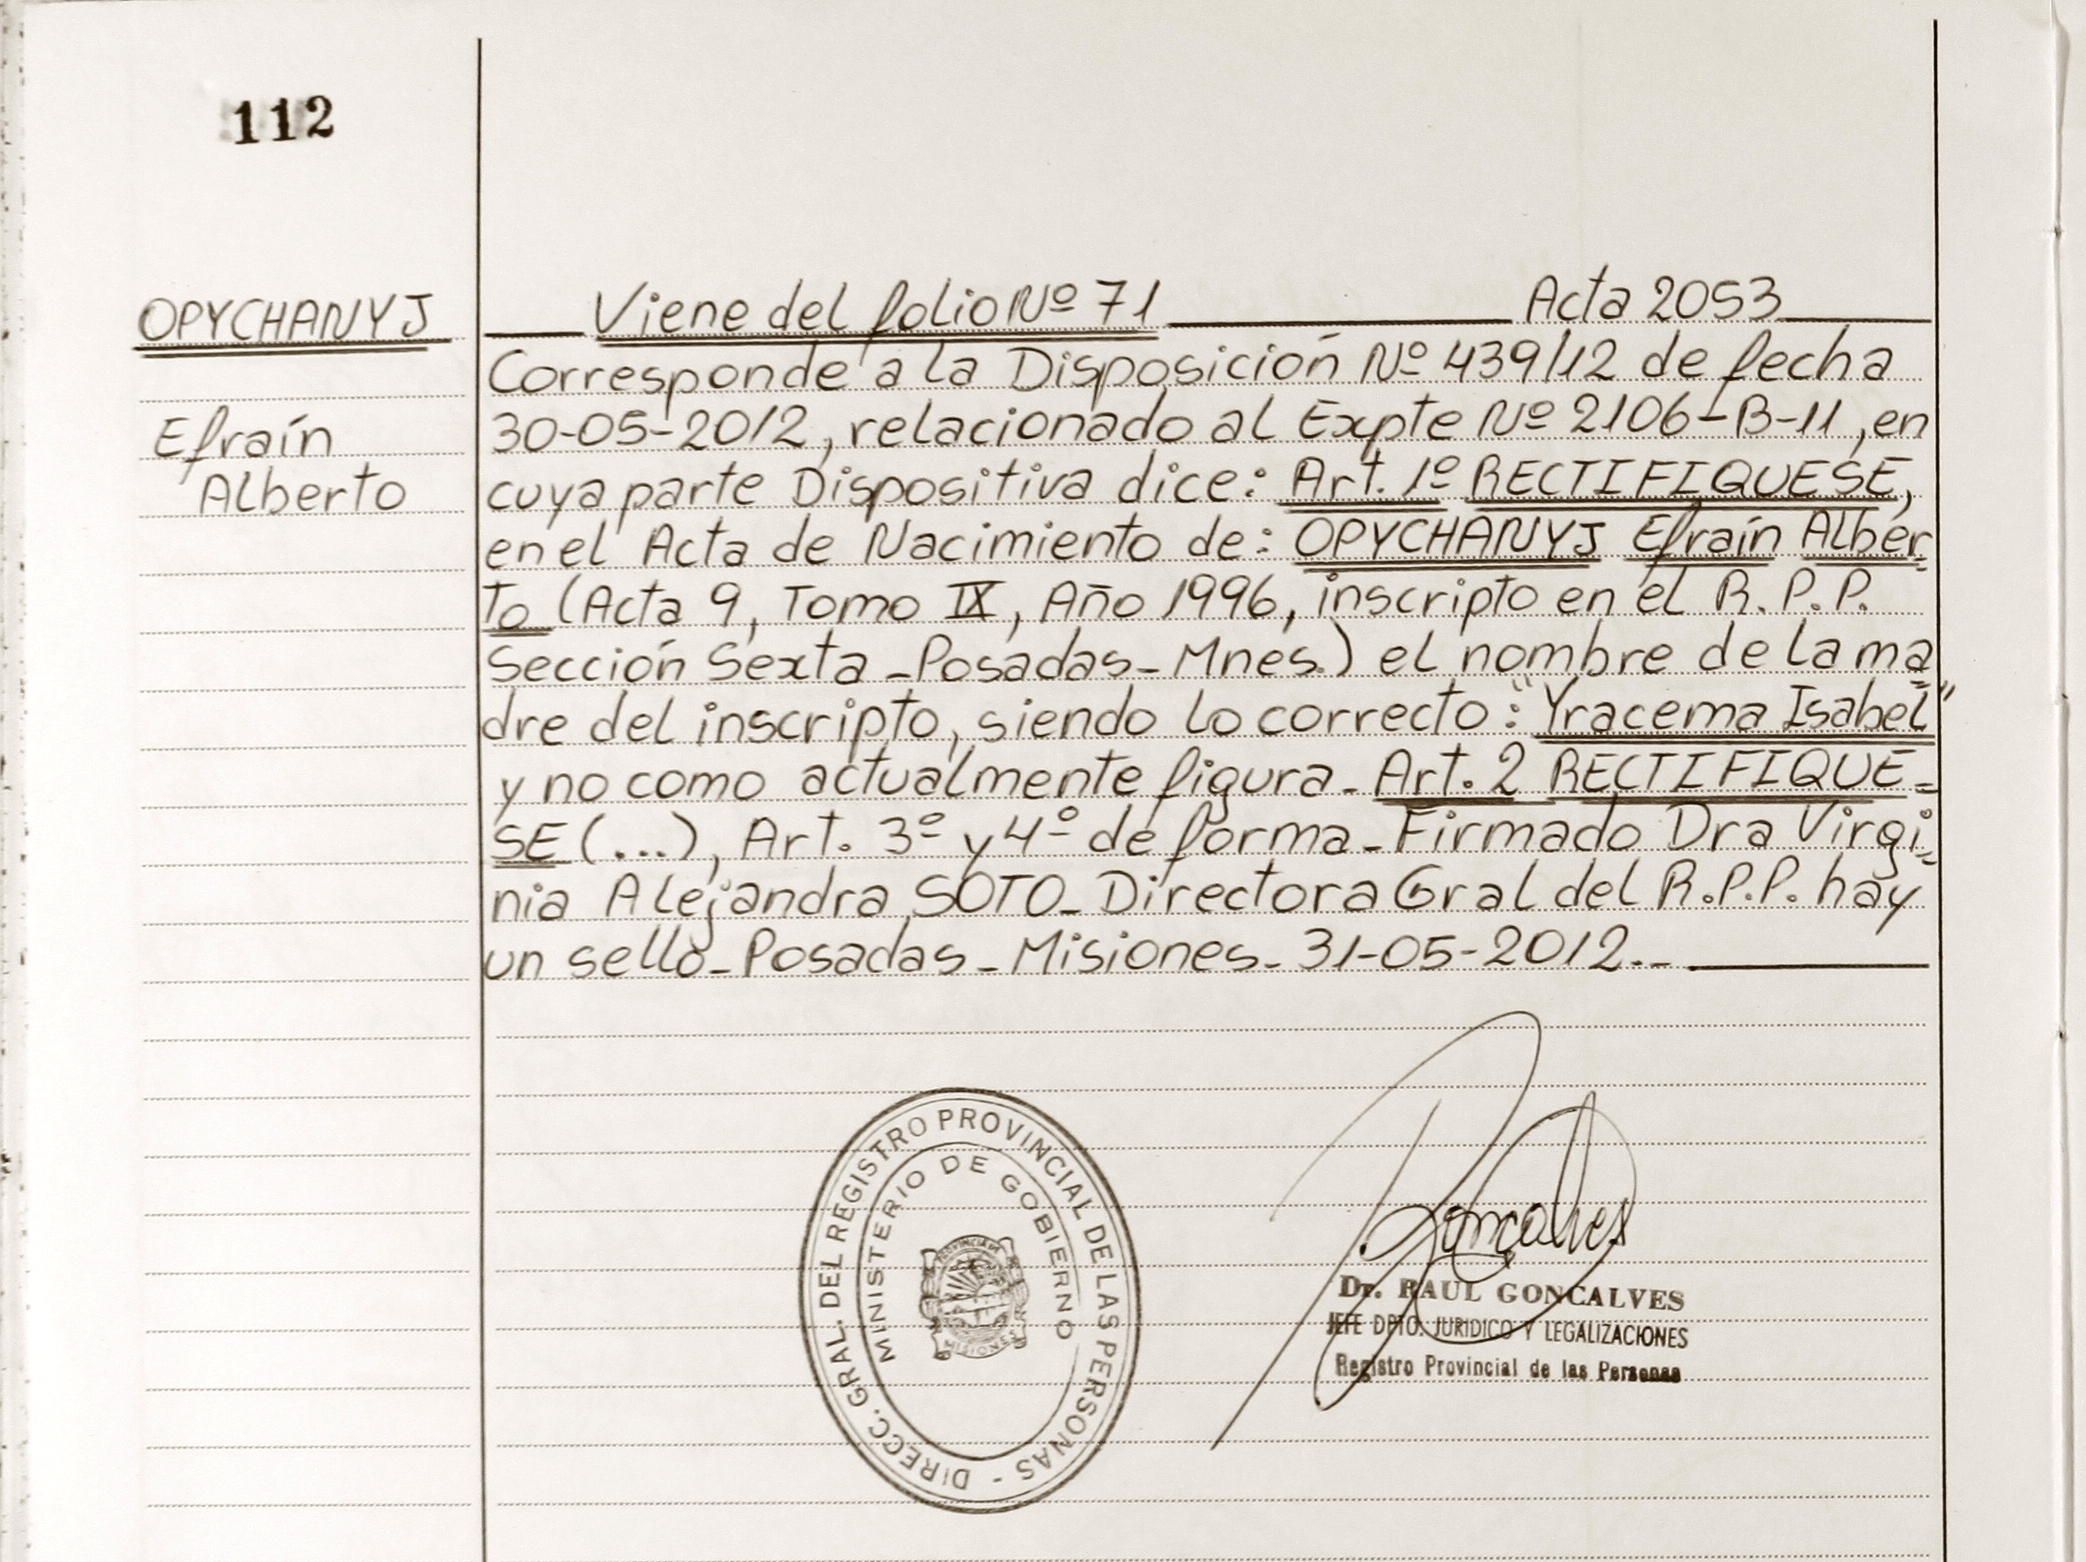 112
OPYCHANYJ
Efraín
Alberto
Viene del folio Nº 71 Acta 2053
Corresponde a la Disposición Nº 439/12 de fecha
30-05-2012, relacionado al Expte Nº 2106-B-11, en
cuya parte Dispositiva dice: Art. 1º RECTIFIQUESE,
en el Acta de Nacimiento de: OPYCHANYJ Efraín Alber-
to (Acta 9, Tomo IX, Año 1996, inscripto en el R.P.P.
Sección Sexta - Posadas - Mnes.) el nombre de la ma-
dre del inscripto, siendo lo correcto: "Yracema Isabel"
y no como actualmente figura - Art. 2 RECTIFIQUE-
SE (...), Art. 3º y 4º de forma - Firmado Dra Virgi-
nia Alejandra SOTO - Directora Gral del R.P.P. hay
un sello - Posadas - Misiones - 31-05-2012.-
DIRECC. GRAL. DEL REGISTRO PROVINCIAL DE LAS PERSONAS -
MINISTERIO DE GOBIERNO
PROVINCIA DE
MISIONES
Goncalves
Dr. RAUL GONCALVES
JEFE DPTO. JURIDICO Y LEGALIZACIONES
Registro Provincial de las Personas